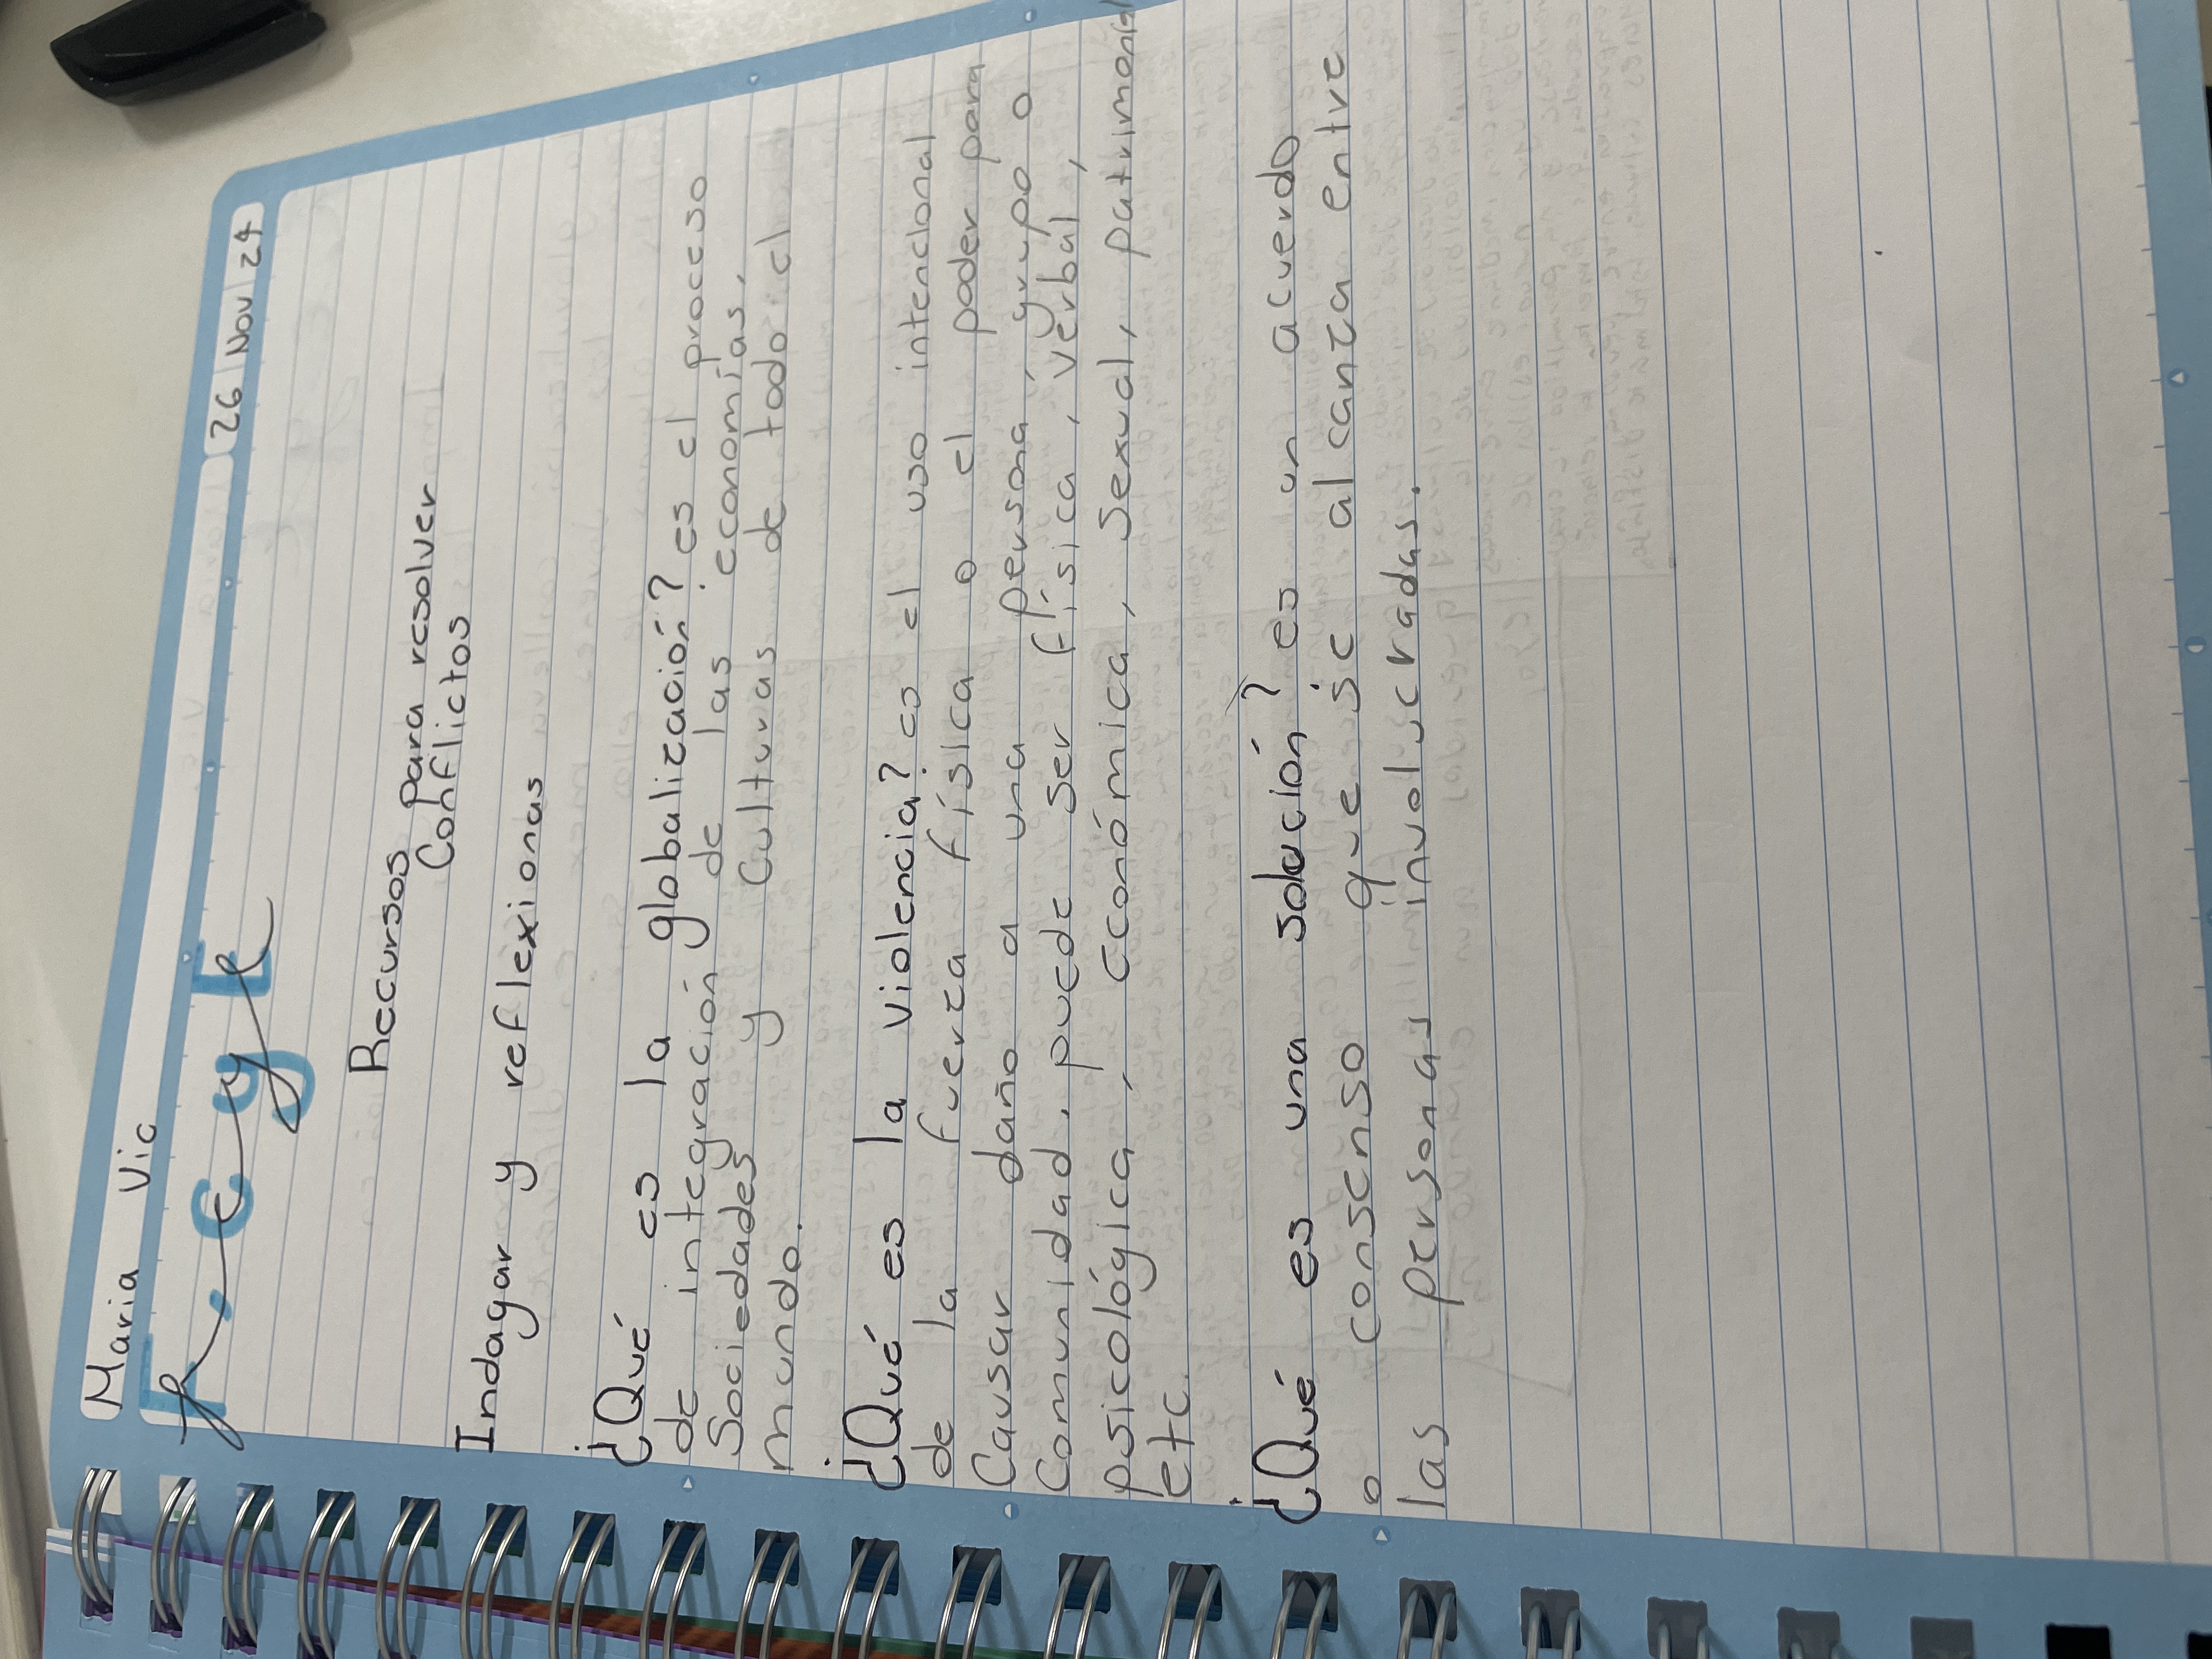 Maria Vic
26 Nov 24
F. C y E
Recursos Para resolver
Conflictos
Indagar y reflexionas
¿Qué es la globalización? es el proceso
de integración de las economías,
Sociedades y Culturas de todo el
mundo.
¿Qué es la violencia? es el uso intencional
de la fuerza física o el poder para
Causar daño a una persona, grupo o
Comunidad, puede ser física, verbal,
psicológica, económica, sexual, patrimonial
etc.
¿Qué es una solución? es un acuerdo
o consenso que se alcanza entre
las personas involscradas.